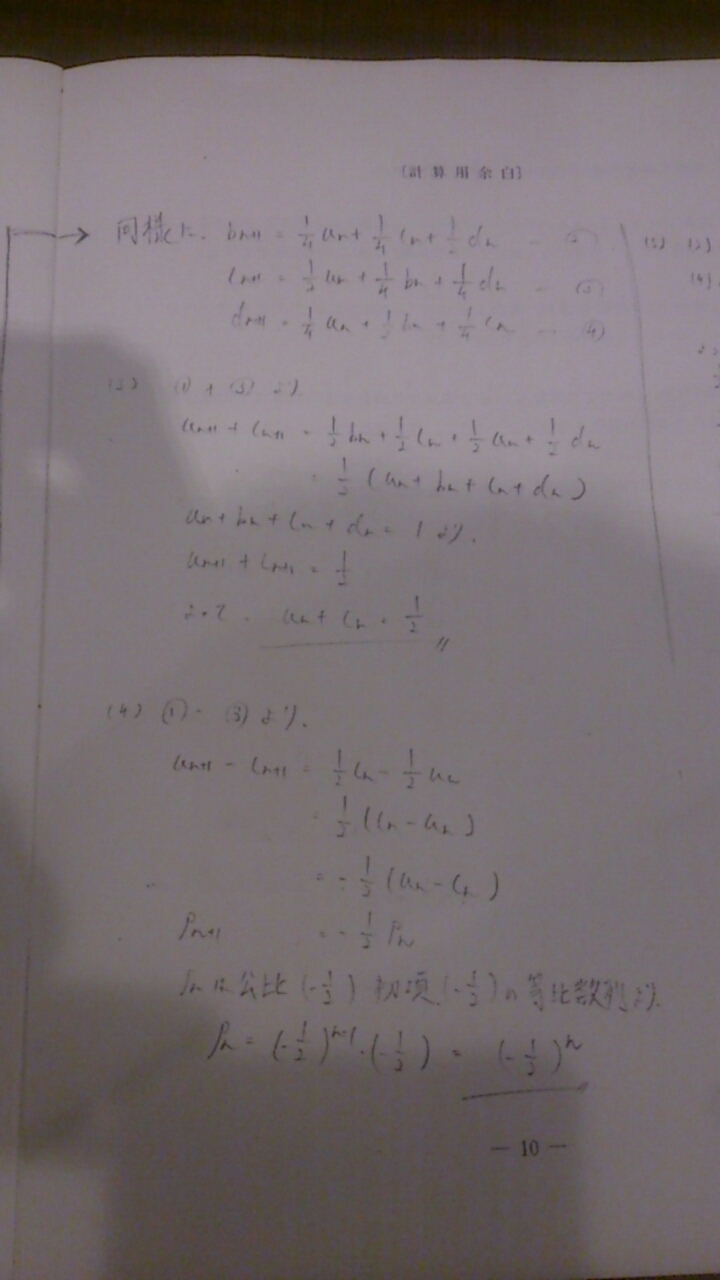 〔計算用余白〕
同様に、 b_{n+1} = 1/4 a_n + 1/4 c_n + 1/2 d_n ― ②
c_{n+1} = 1/2 a_n + 1/4 b_n + 1/4 d_n ― ③
d_{n+1} = 1/4 a_n + 1/2 b_n + 1/4 c_n ― ④
(3) ① + ③ より
a_{n+1} + c_{n+1} = 1/2 b_n + 1/2 c_n + 1/2 a_n + 1/2 d_n
= 1/2 (a_n + b_n + c_n + d_n)
a_n + b_n + c_n + d_n = 1 より.
a_{n+1} + c_{n+1} = 1/2
よって. a_n + c_n = 1/2
(4) ① - ③ より.
a_{n+1} - c_{n+1} = 1/2 c_n - 1/2 a_n
= 1/2 (c_n - a_n)
= - 1/2 (a_n - c_n)
P_{n+1} = - 1/2 P_n
P_n は公比 (-1/2) 初項 (-1/2) の等比数列より.
P_n = (-1/2)^{n-1}・(-1/2) = (-1/2)^n
― 10 ―